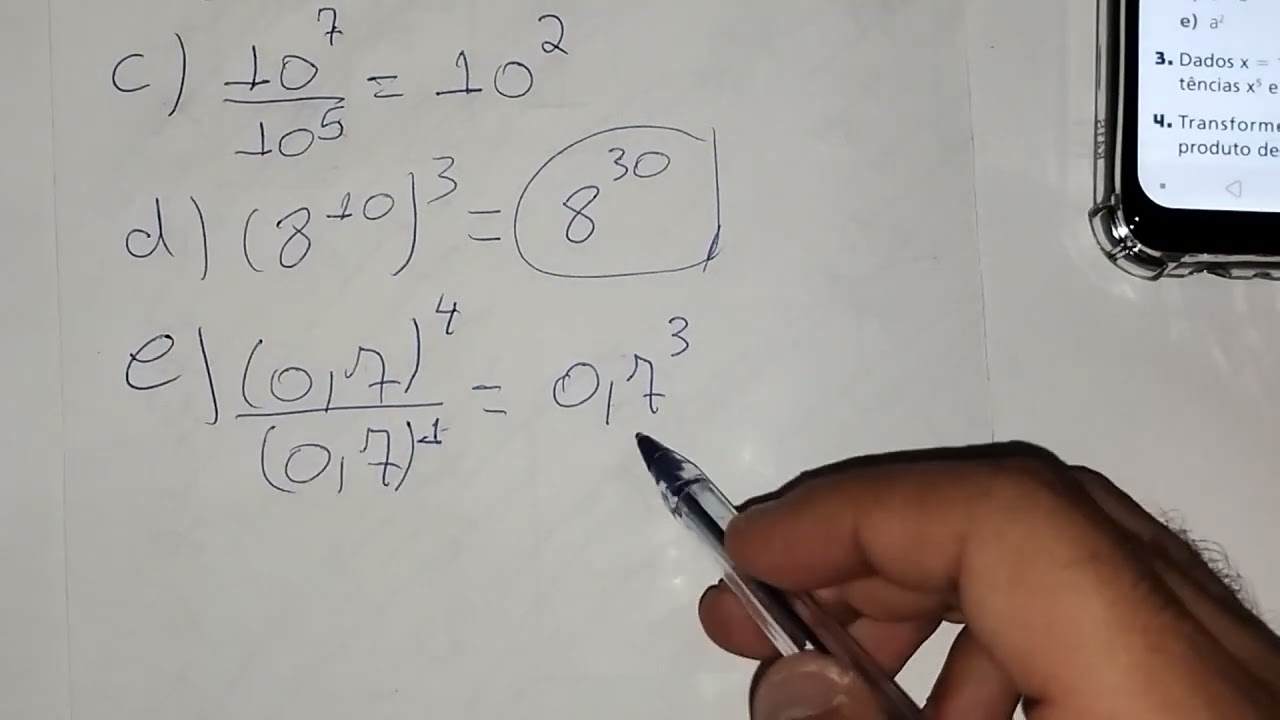 c) 10⁷/10⁵ = 10²
d) (8¹⁰)³ = 8³⁰
e) (0,7)⁴/(0,7)¹ = 0,7³
e) a²
3. Dados x =
tências x⁵ e
4. Transforme
produto de